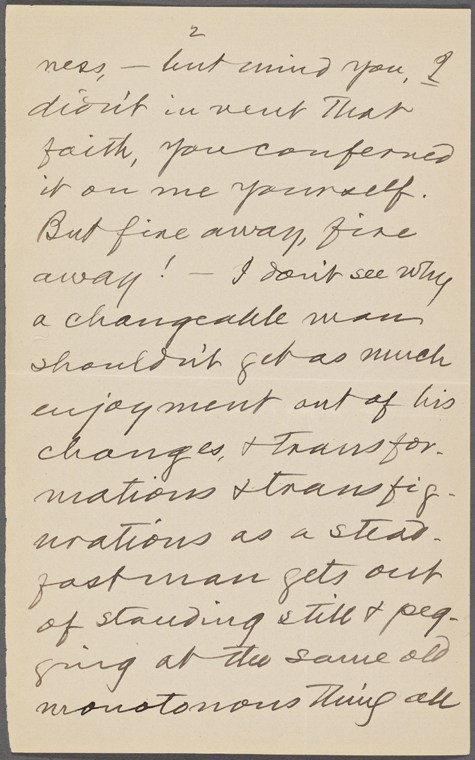 2
ness, — but mind you, I
didn't invent that
faith, you conferred
it on me yourself.
But fire away, fire
away! — I don't see why
a changeable man
shouldn't get as much
enjoyment out of his
changes, & transfor-
mations & transfig-
urations as a stead-
fast man gets out
of standing still & peg-
ging at the same old
monotonous thing all